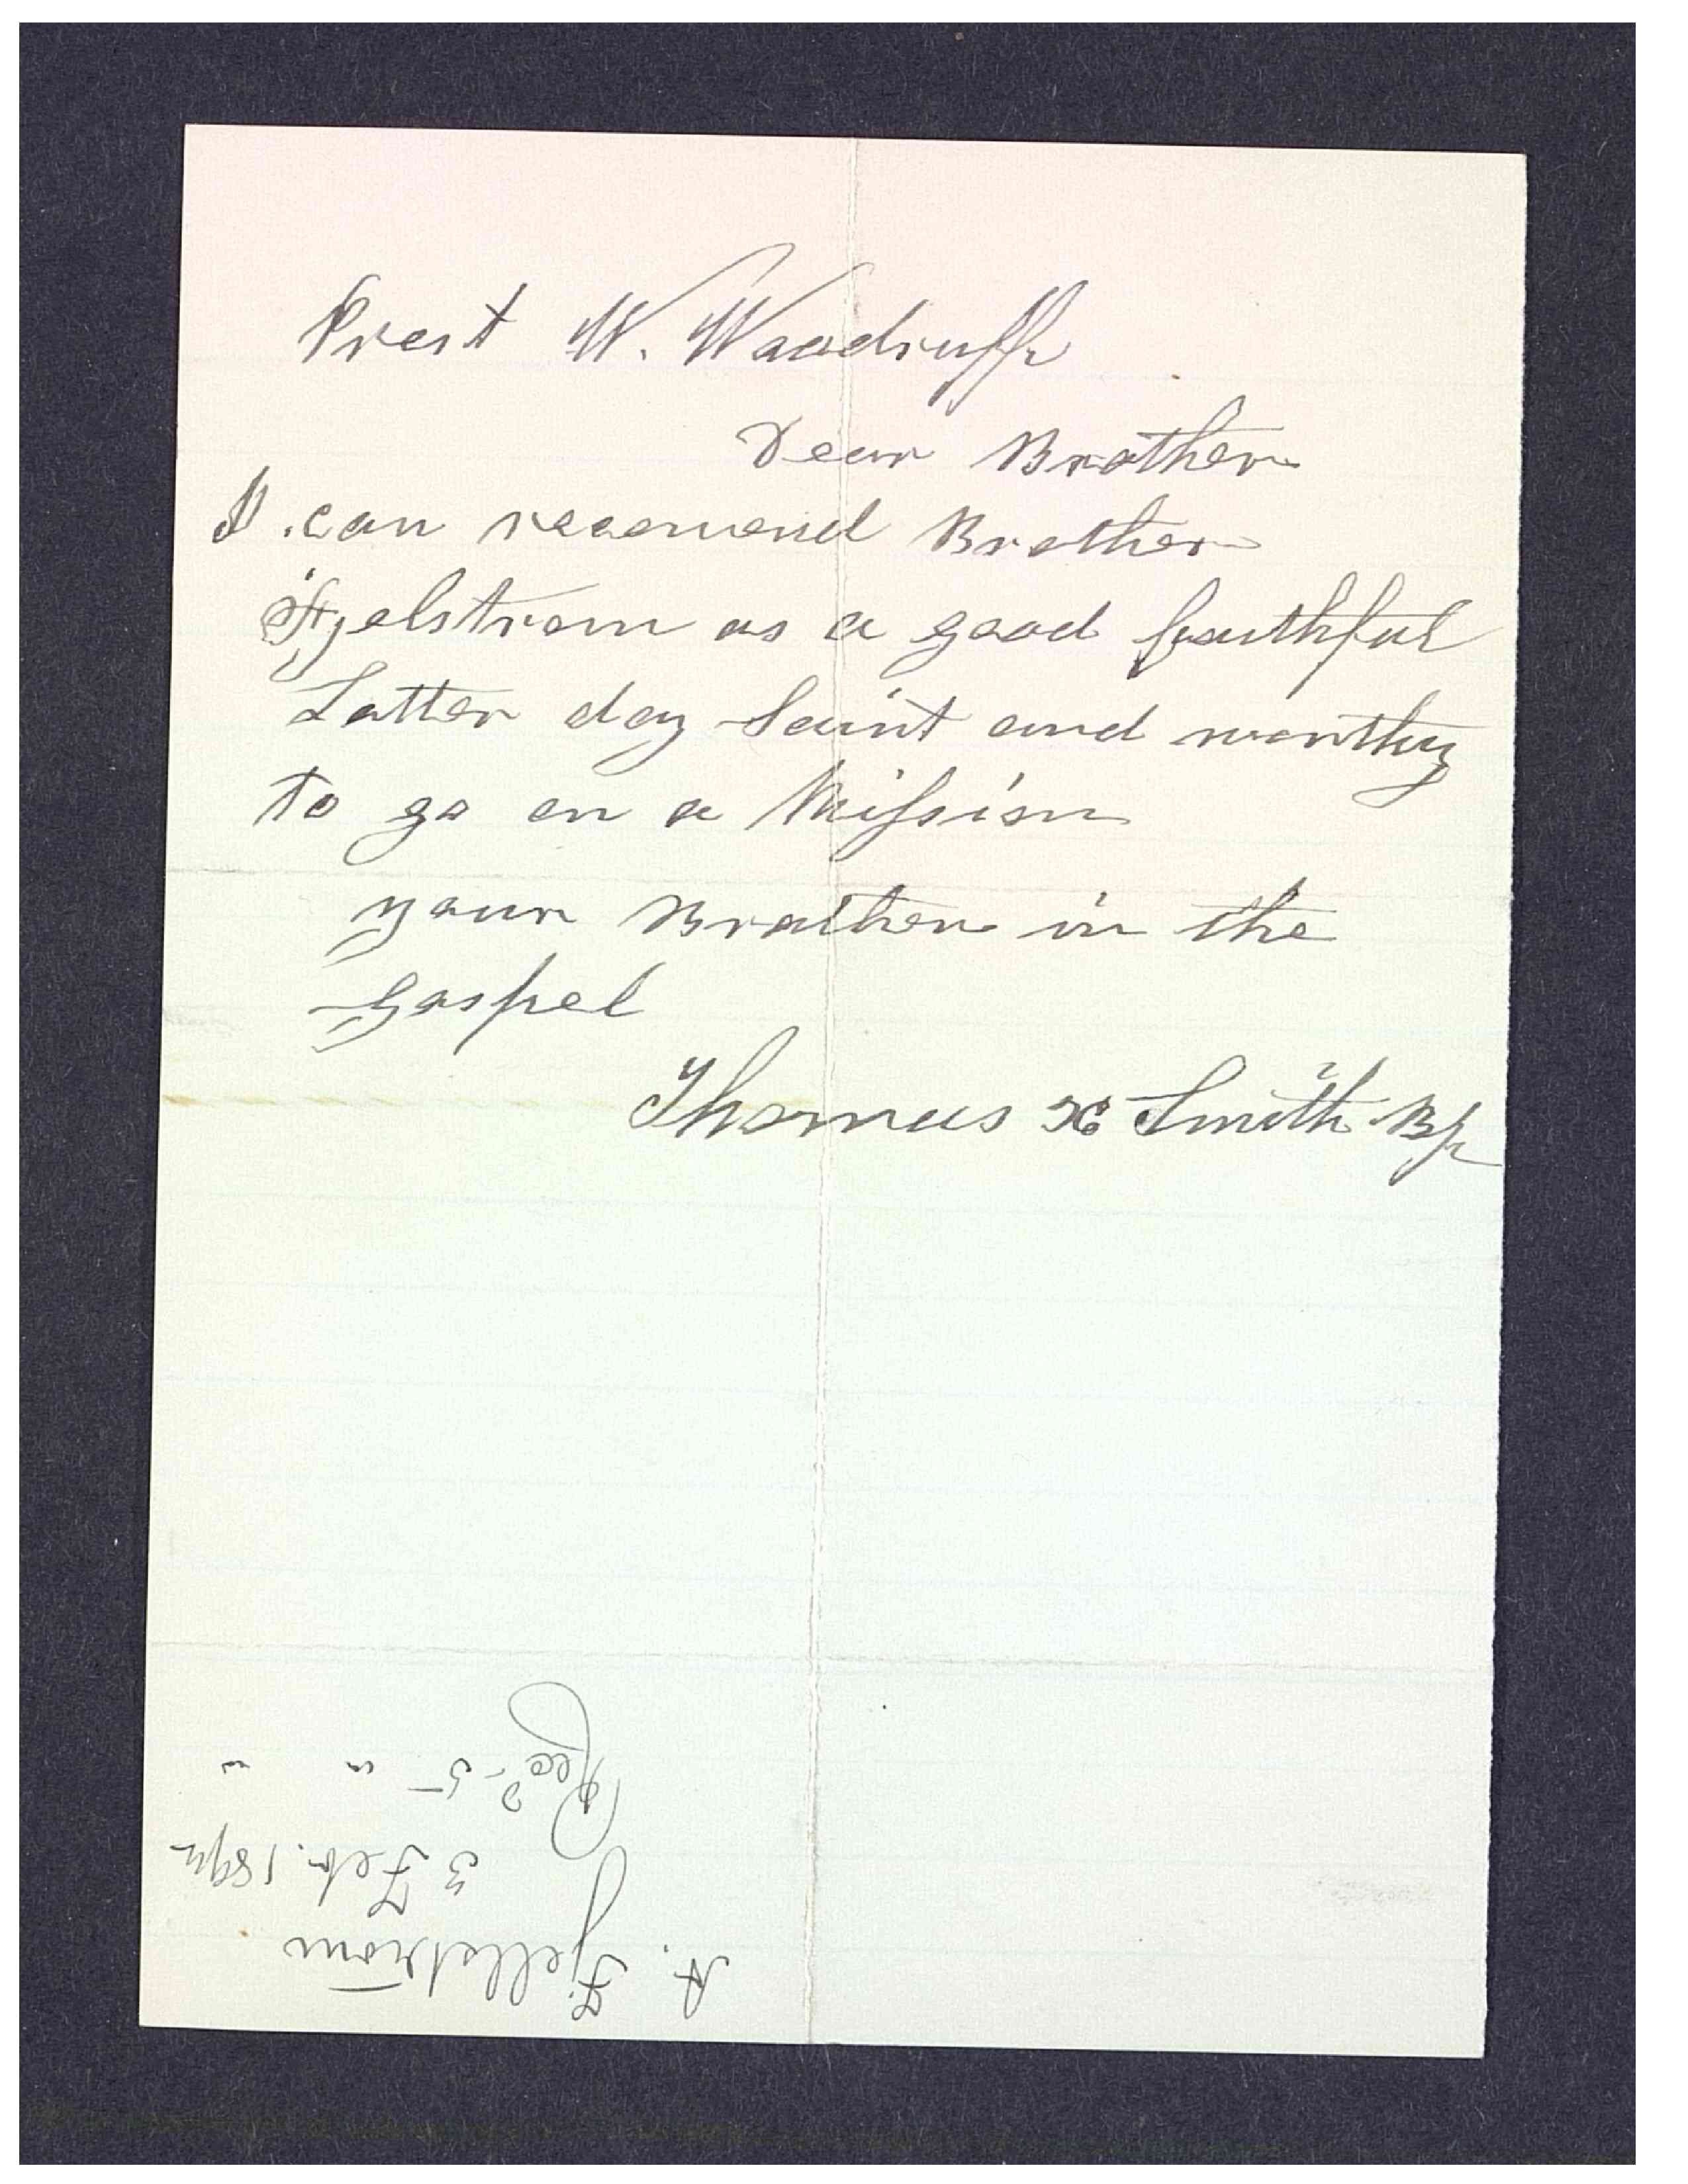 Prest W. Woodruff
Dear Brother
I can recomend Brother
Fjelstrom as a good faithful
Latter day Saint and worthy
to go on a Mission
your Brother in the
Gospel
Thomas X Smith Bp
A. Fjellstrom
3 Feb. 1892
Recd. 5 " "